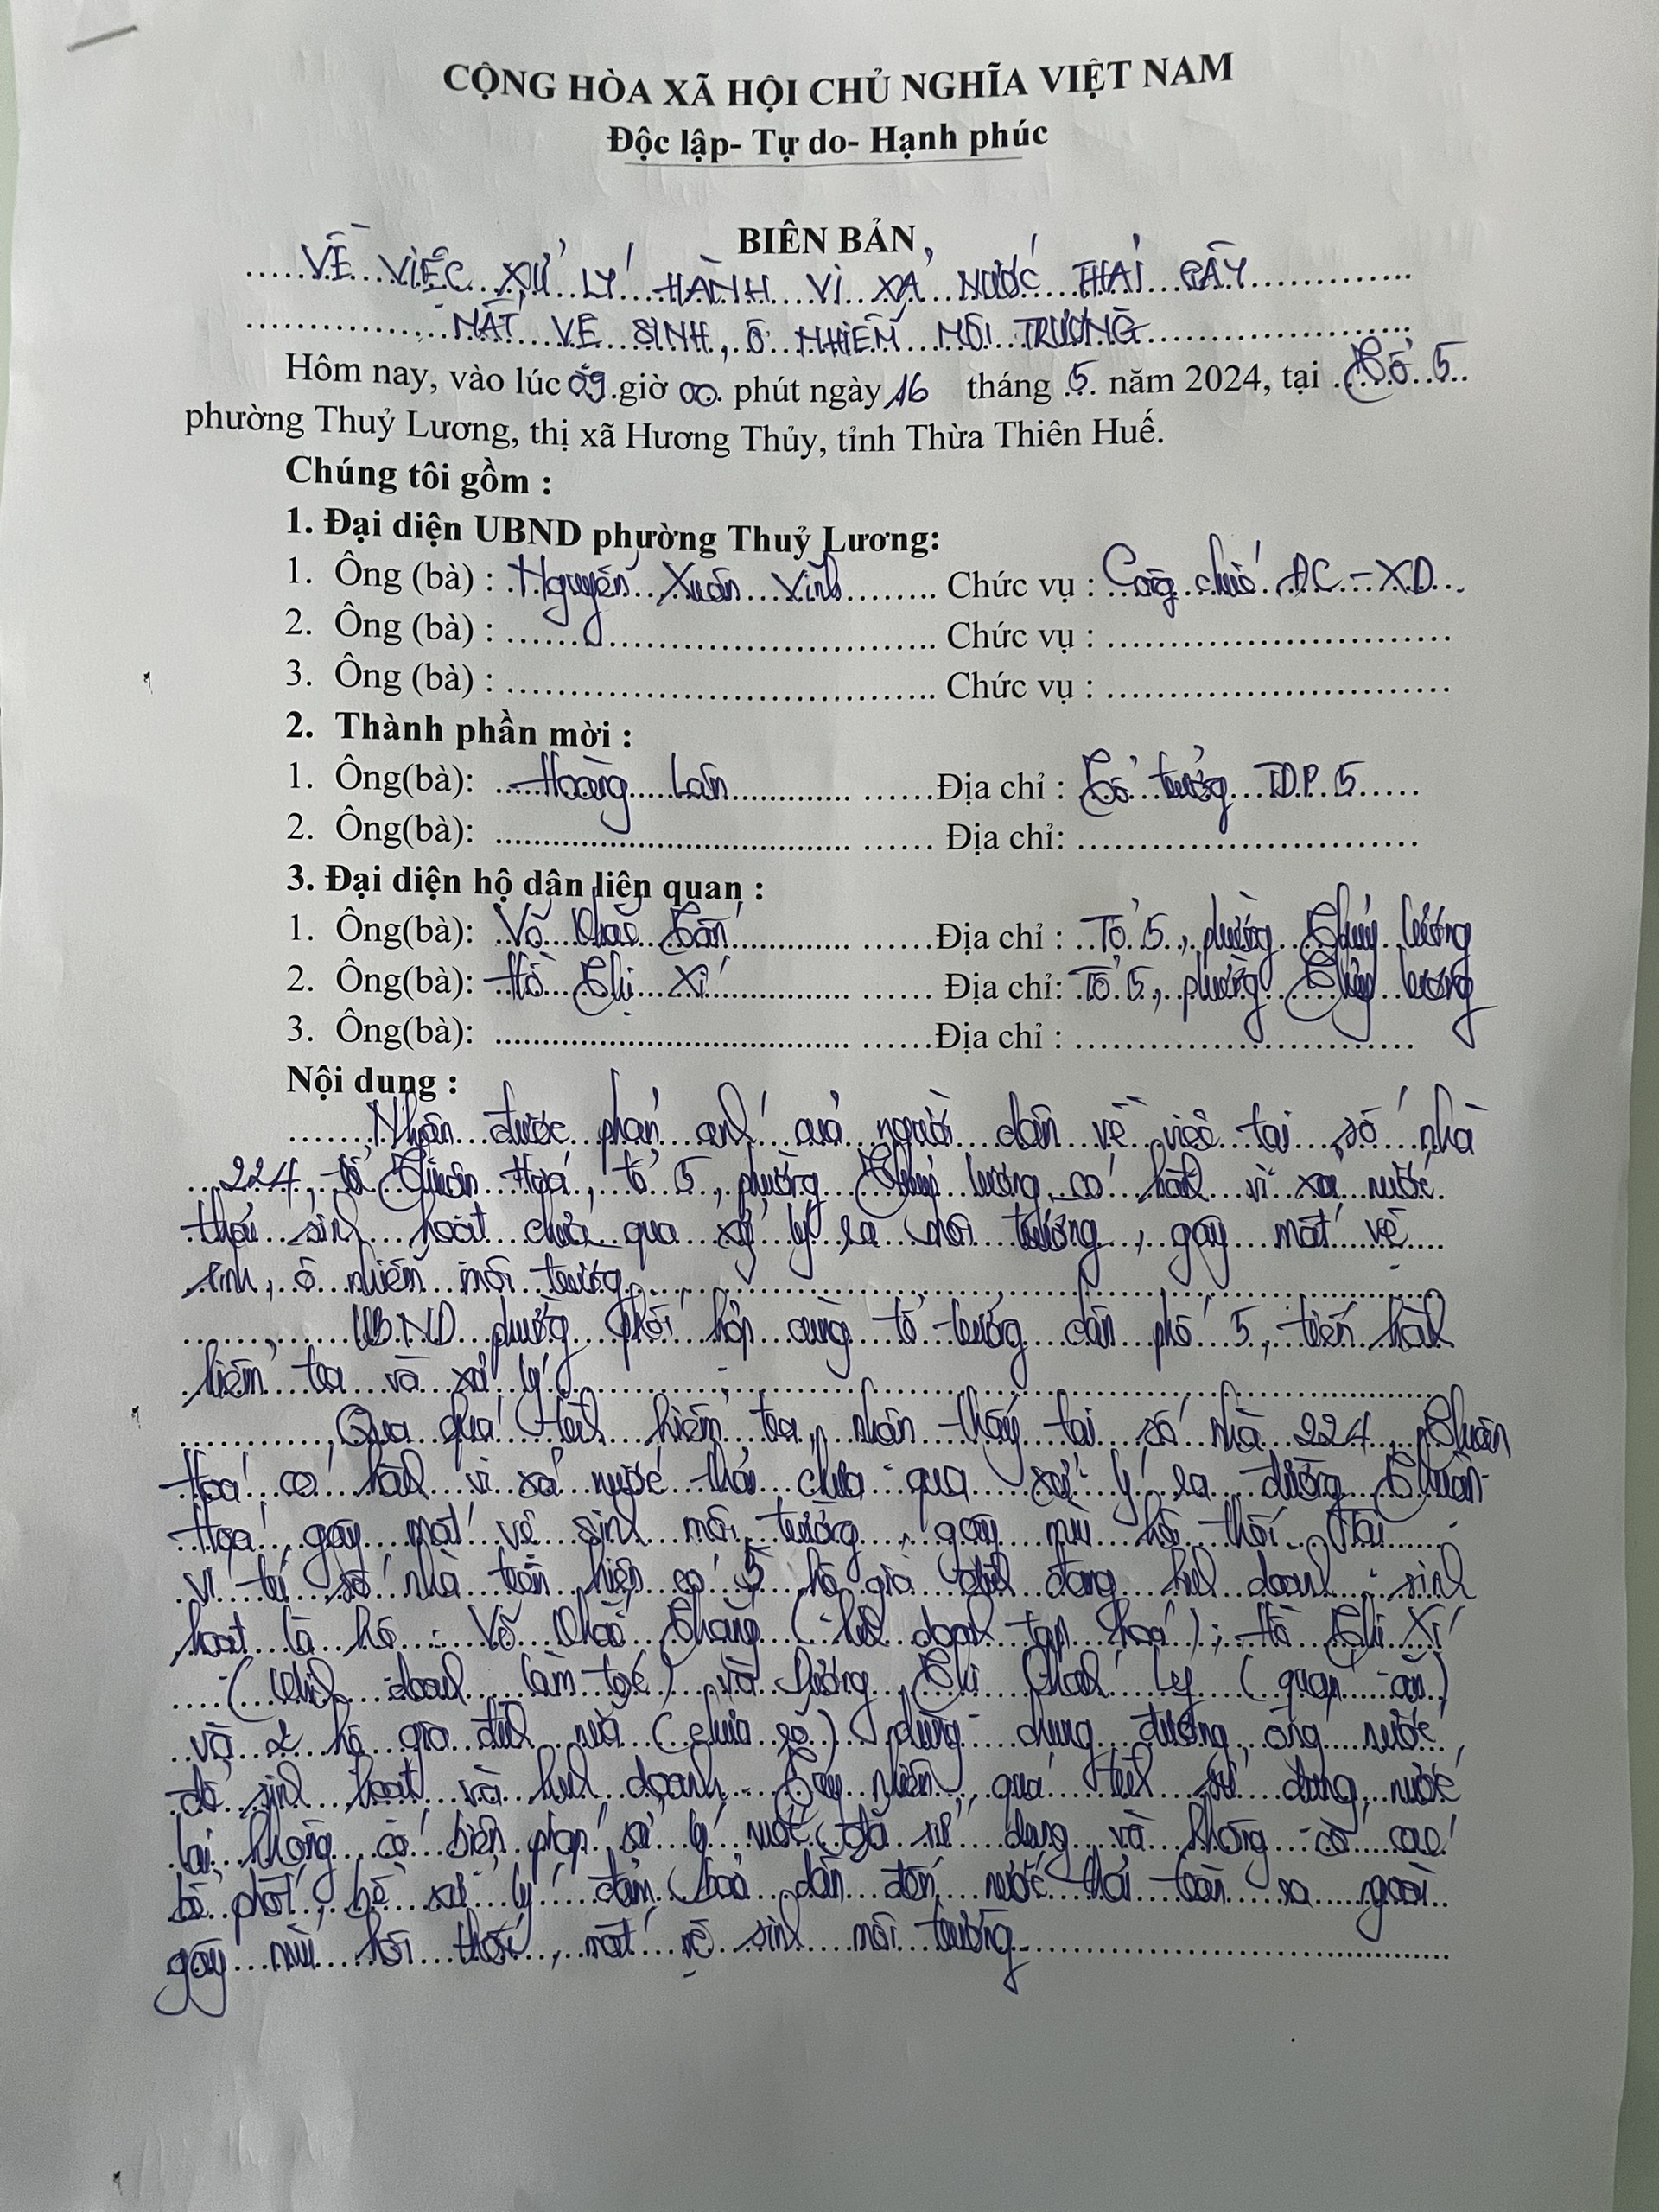 CỘNG HÒA XÃ HỘI CHỦ NGHĨA VIỆT NAM
Độc lập- Tự do- Hạnh phúc
BIÊN BẢN
VỀ VIỆC XỬ LÝ HÀNH VI XẢ NƯỚC THẢI GÂY
MẤT VỆ SINH, Ô NHIỄM MÔI TRƯỜNG
Hôm nay, vào lúc 09 giờ 00 phút ngày 16 tháng 5 năm 2024, tại Tổ 5
phường Thuỷ Lương, thị xã Hương Thủy, tỉnh Thừa Thiên Huế.
Chúng tôi gồm :
1. Đại diện UBND phường Thuỷ Lương:
1. Ông (bà) : Nguyễn Xuân Vinh Chức vụ : Công chức ĐC - XD
2. Ông (bà) : Chức vụ :
3. Ông (bà) : Chức vụ :
2. Thành phần mời :
1. Ông(bà): Hoàng Lân Địa chỉ : Tổ trưởng TDP 5
2. Ông(bà): Địa chỉ:
3. Đại diện hộ dân liên quan :
1. Ông(bà): Võ Địa chỉ : Tổ 5, phường Thủy Lương
2. Ông(bà): Hồ Thị Xí Địa chỉ: Tổ 5, phường Thủy Lương
3. Ông(bà): Địa chỉ :
Nội dung :
Nhận được phản ánh của người dân về việc tại số nhà
224, Thuận Hoá, tổ 5, phường Thủy Lương có hành vi xả nước
thải sinh hoạt chưa qua xử lý ra môi trường, gây mất vệ
sinh, ô nhiễm môi trường.
UBND phường phối hợp cùng tổ trưởng dân phố 5, tiến hành
kiểm tra và xử lý.
Qua quá trình kiểm tra, nhận thấy tại số nhà 224 Thuận
Hoá có hành vi xả nước thải chưa qua xử lý ra đường Thuận
Hoá gây mất vệ sinh môi trường, gây mùi hôi thối. Tại
vị trí số nhà trên hiện có 5 hộ gia đình đang kinh doanh, sinh
hoạt là hộ : Võ (kinh doanh tạp hoá); Hồ Thị Xí
(kinh doanh làm tóc) và Thị Khánh Ly (quán ăn)
và 2 hộ gia đình nữa (chưa rõ) dùng chung đường ống nước
để sinh hoạt và kinh doanh. Tuy nhiên, quá trình sử dụng nước
lại không có biện pháp xử lý nước đã sử dụng và không có các
bể phốt, bể xử lý đảm bảo dẫn đến nước thải tràn ra ngoài
gây mùi hôi thối, mất vệ sinh môi trường.